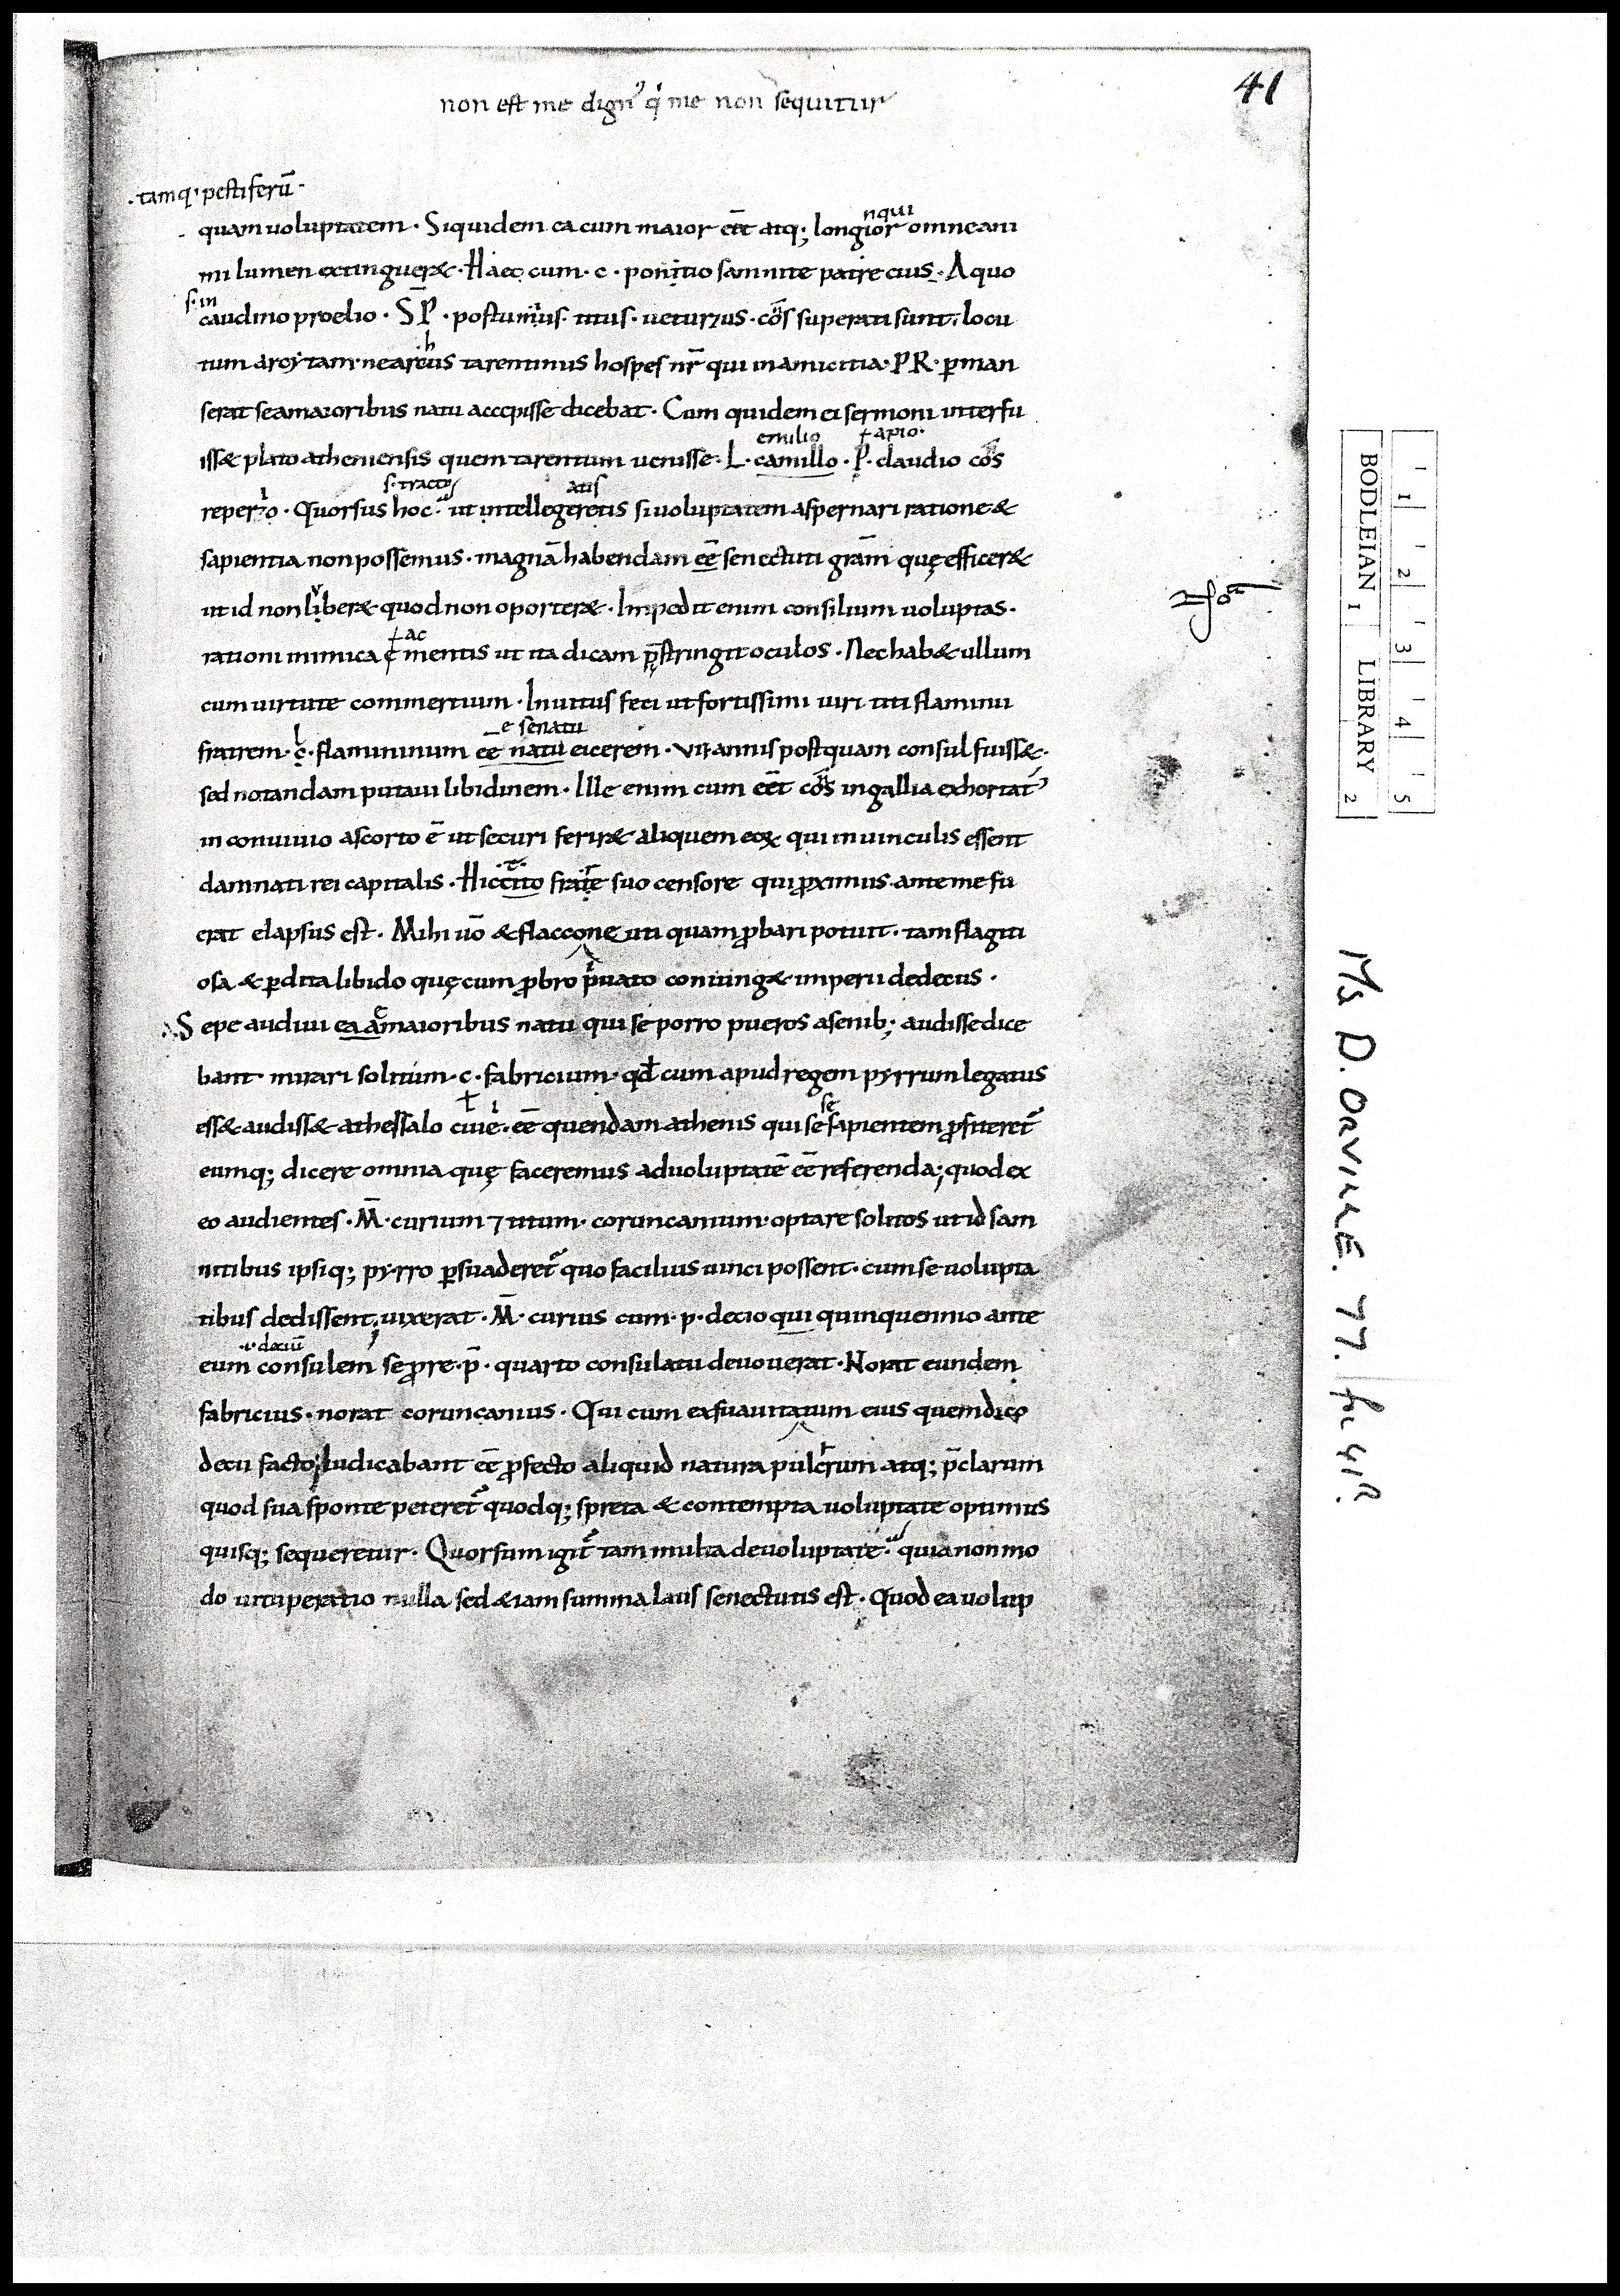 41
non est me dign⁹ q' me non sequitur
·tamq; pestiferū·
quam uoluptatem · Siquidem ea cum maior eēt atq; longior omne ani
nqui
mi lumen extinguer& · Haec cum · c · pontio samnite patre eius · A quo
s· in
caudino proelio · S P̄ · postumius · titus · ueturius · cōs superati sunt · locu
h
tum arcytam · nearcus tarentinus hospes nr̄ qui in amicitia · P R · ꝑman
serat se a maioribus natu accepisse dicebat · Cum quidem ei sermoni interfu
emilio ł apio·
iss& plato atheniensis quem tarentum uenisse · L · camillo · P · claudio cōs
s· tract⁹ atis
reperio · Quorsus hoc · ut intellegeretis si uoluptatem aspernari ratione &
sapientia non possemus · magnā habendam eē senectuti gr̄am quę efficer&
ut id non liber& quod non oporter& · Impedit enim consilium uoluptas ·
ł ac
rationi inimica ę mentis ut ita dicam p̄stringit oculos · Nec hab& ullum
cum uirtute commertium · Inuitus feci ut fortissimi uiri titi flaminii
l e senatu
fratrem · c · flamininum eē natu eicerem · VII annis postquam consul fuiss& ·
sed notandam putaui libidinem · Ille enim cum eēt cōs in gallia exhortat⁹
in conuiuio a scorto ē ut securi ferir& aliquem eoꝝ qui in uinculis essent
damnati rei capitalis · Hic tito fratre suo censore qui ꝓximus ante me fu
erat elapsus est · Mihi uō & flaccone uti quam ꝓbari potuit · tam flagiti
osa & ꝑdita libido quę cum ꝓbro priuato coniung& imperii dedecus ·
Sepe audiui ea a maioribus natu qui se porro pueros a senib; audisse dice
bant mirari solitum · c · fabricium · qđ cum apud regem pyrrum legatus
se
ess& audiss& a thessalo ciue · eē quendam athenis qui se sapientem ꝓfiteret̄
eumq; dicere omnia quę faceremus ad uoluptatē eē referenda; quod ex
eo audientes · M̄ · curium ⁊ titum · coruncanium · optare solitos ut id sam
nitibus ipsiq; pyrro ꝑsuaderet̄ quo facilius uinci possent · cum se uolupta
tibus dedissent; uixerat · M̄ · curius cum · p · decio qui quinquennio ante
·i· deciū
eum consulem se ꝓ re · p̄ · quarto consulatu deuouerat · Norat eundem
fabricius · norat coruncanius · Qui cum ex sua uita tum eius quem dico
decii facto iudicabant eē ꝓfecto aliquid natura pulcrum atq; p̄clarum
quod sua sponte peteret̄ quodq; spreta & contempta uoluptate optimus
quisq; sequeretur · Quorsum igit̄ tam multa de uoluptate · quia non mo
do uituperatio nulla sed &iam summa laus senectutis est · Quod ea uolup
BODLEIAN LIBRARY
1 2
1 2 3 4 5
Ms D. ORVILLE. 77. fol 41R.